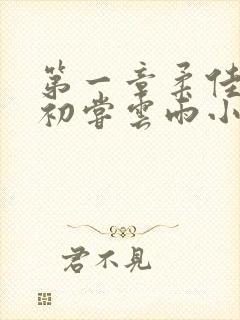 第一章柔佳
初嘗雲雨小
君不見